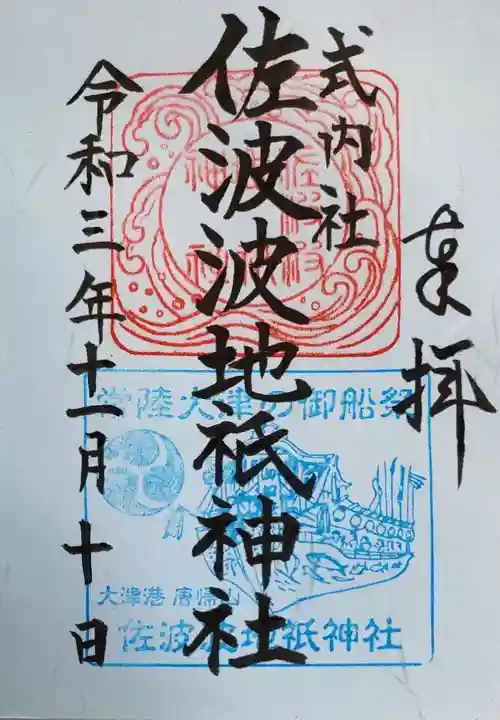 奉拝
式内社
佐波波地祇神社
令和三年十一月十日
常陸大津の御船祭
大津港 唐帰山
佐波波地祇神社